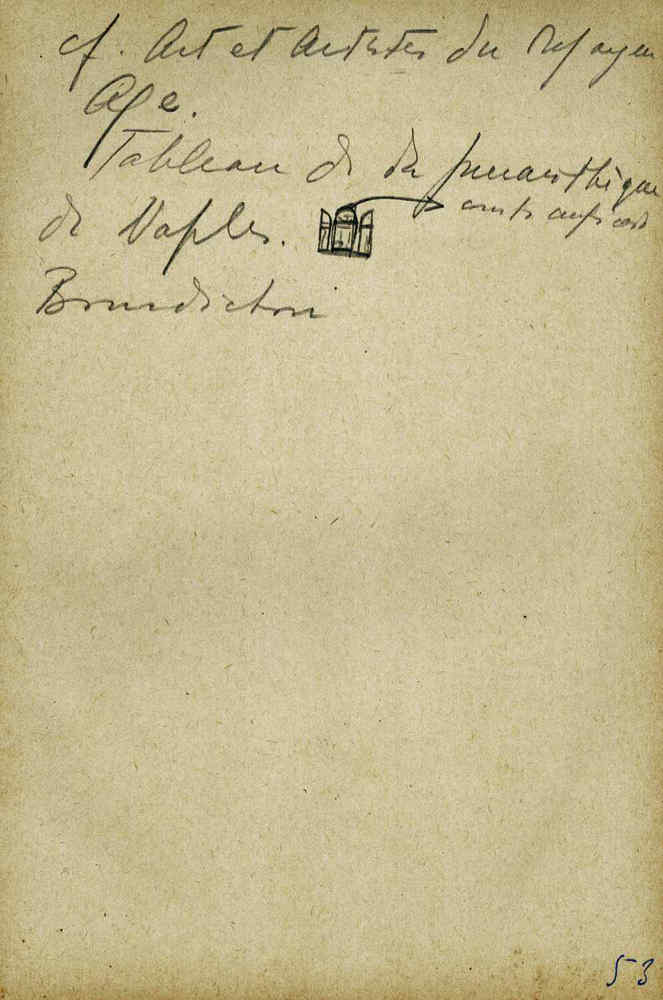 cf. Art et Artistes du Moyen
Age.
Tableau de la pinacothèque
de Naples.
Benediction
53